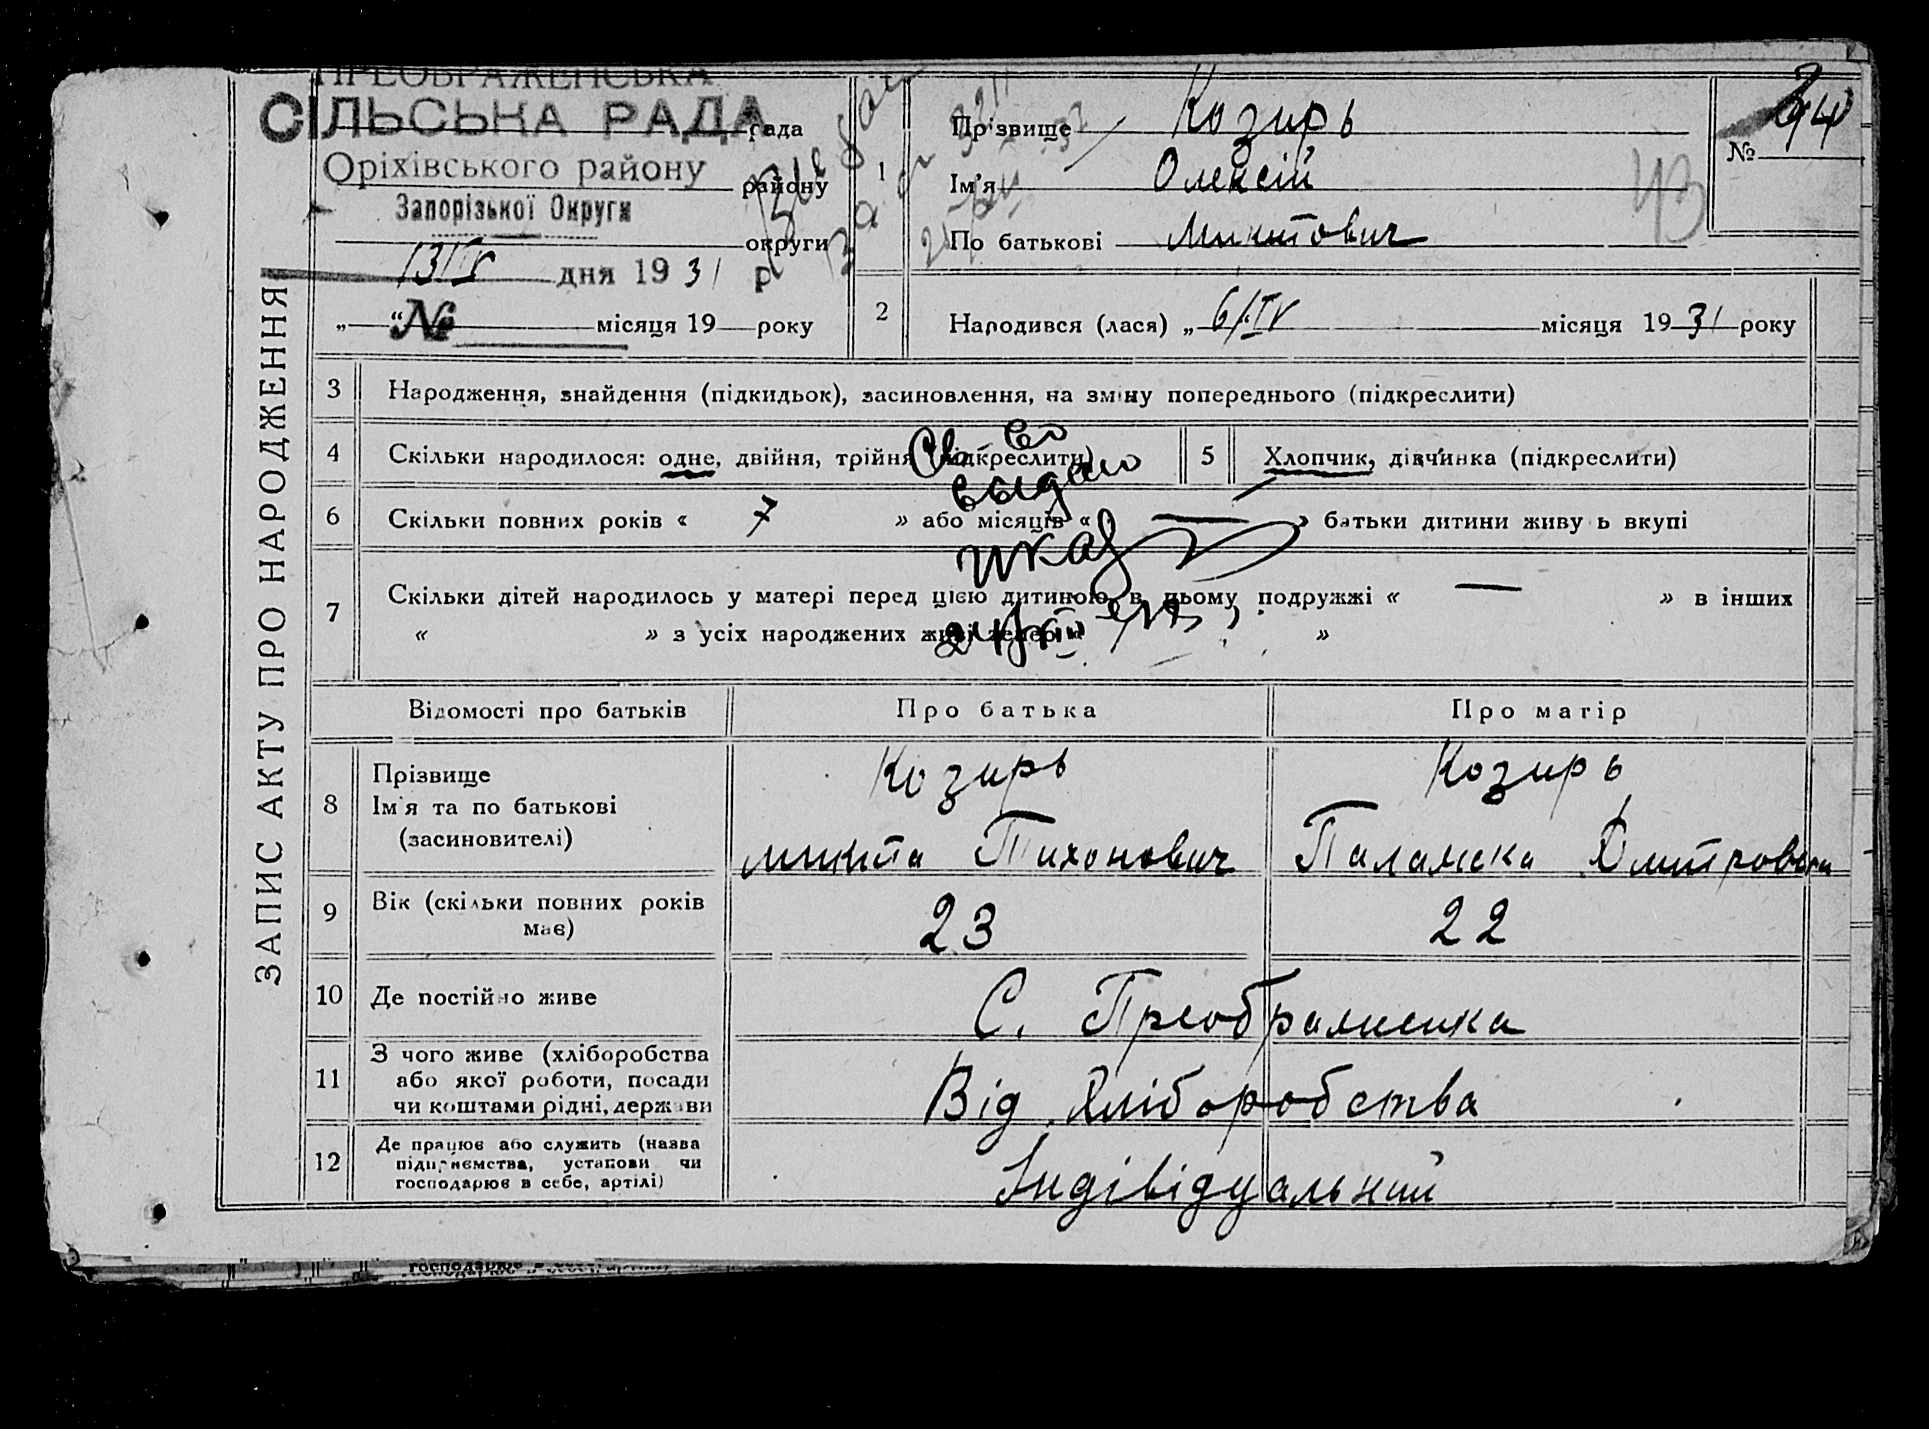 ПРЕОБРАЖЕНСЬКА
СІЛЬСЬКА РАДА
рада
Оріхівського району
району
Запорізької Округи
округи
13/IV дня 1931 р
№
„ “ місяця 19 року
ЗАПИС АКТУ ПРО НАРОДЖЕННЯ
№ 94
43
1 Прізвище Козирь
Ім'я Олексій
По батькові Микитович
2 Народився (лася) „ 6/IV місяця 1931 року
3 Народження, знайдення (підкидьок), засиновлення, на зміну попереднього (підкреслити)
4 Скільки народилося: одне, двійня, трійня (підкреслити)
5 Хлопчик, дівчинка (підкреслити)
Св-во
выдано
6 Скільки повних років « 7 » або місяців « — » батьки дитини живуть вкупі
7 Скільки дітей народилось у матері перед цією дитиною в цьому подружжі « — » в інших
« » з усіх народжених живі тепер « »
Відомості про батьків Про батька Про матір
8 Прізвище
Ім'я та по батькові
(засиновителі)
Козирь
Микита Тихонович
Козирь
Палажка Дмитровна
9 Вік (скільки повних років має) 23 22
10 Де постійно живе С. Преображенка
11 З чого живе (хліборобства
або якої роботи, посади
чи коштами рідні, держави
Від Хліборобства
12 Де працює або служить (назва
підприємства, установи чи
господарює в себе, артілі)
Індівідуальний